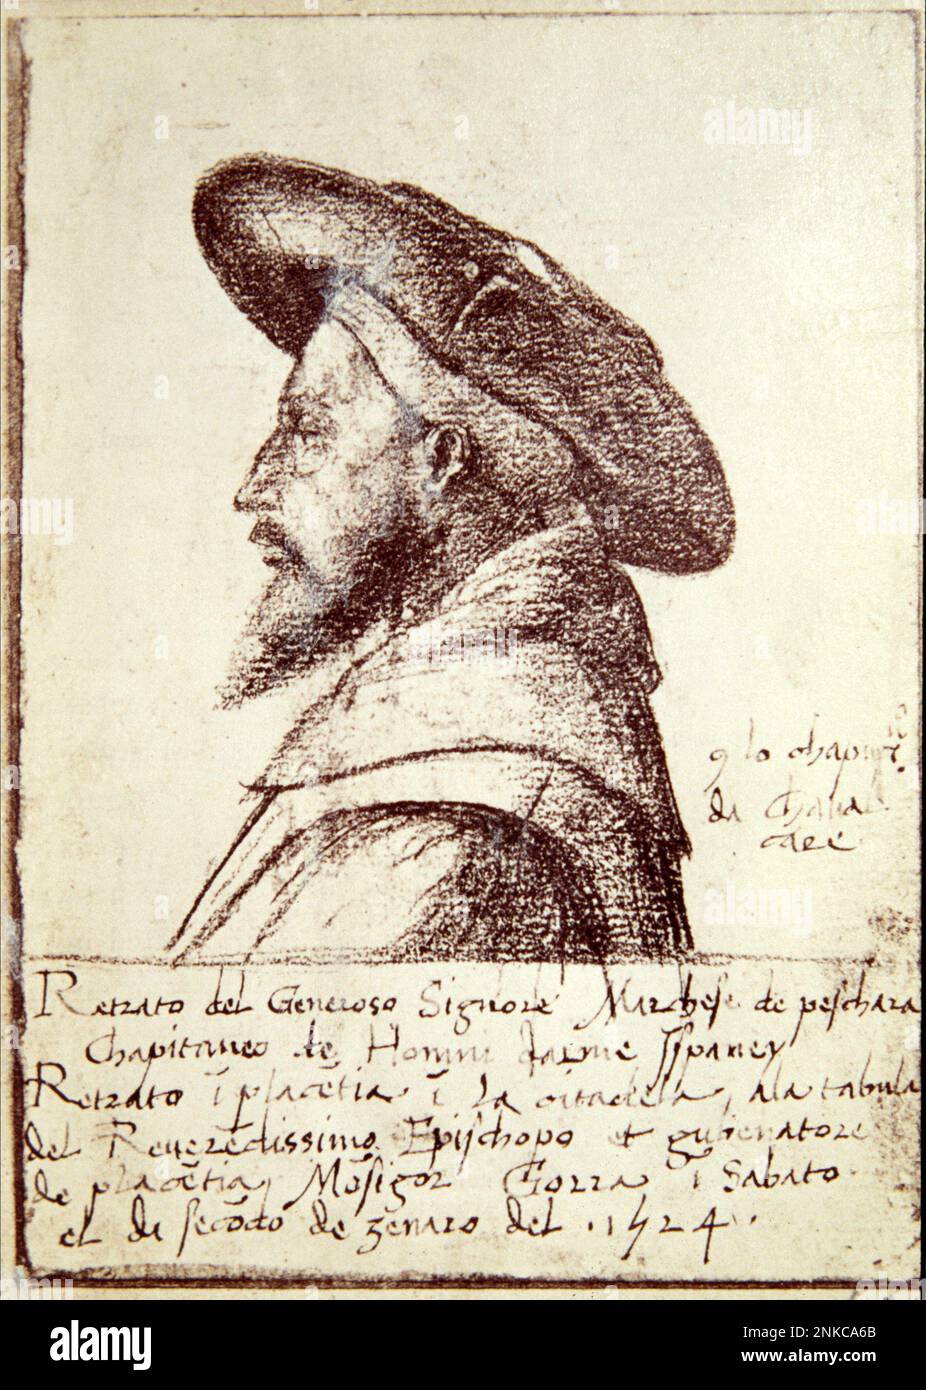 q lo chapi
da Chaval
care
Retrato del Generoso Signore Marchese de peschara
Chapitaneo de Homini Darme Spaney
Retrato ī placētia ī la citadela, ala tabula
del Reverēdissimo Epischopo et gubernatore
de placētia, Mōsigor Gorra ī Sabato
el di secōdo de zenaro del .1524.
alamy
Image ID: 2NKCA6B
www.alamy.com